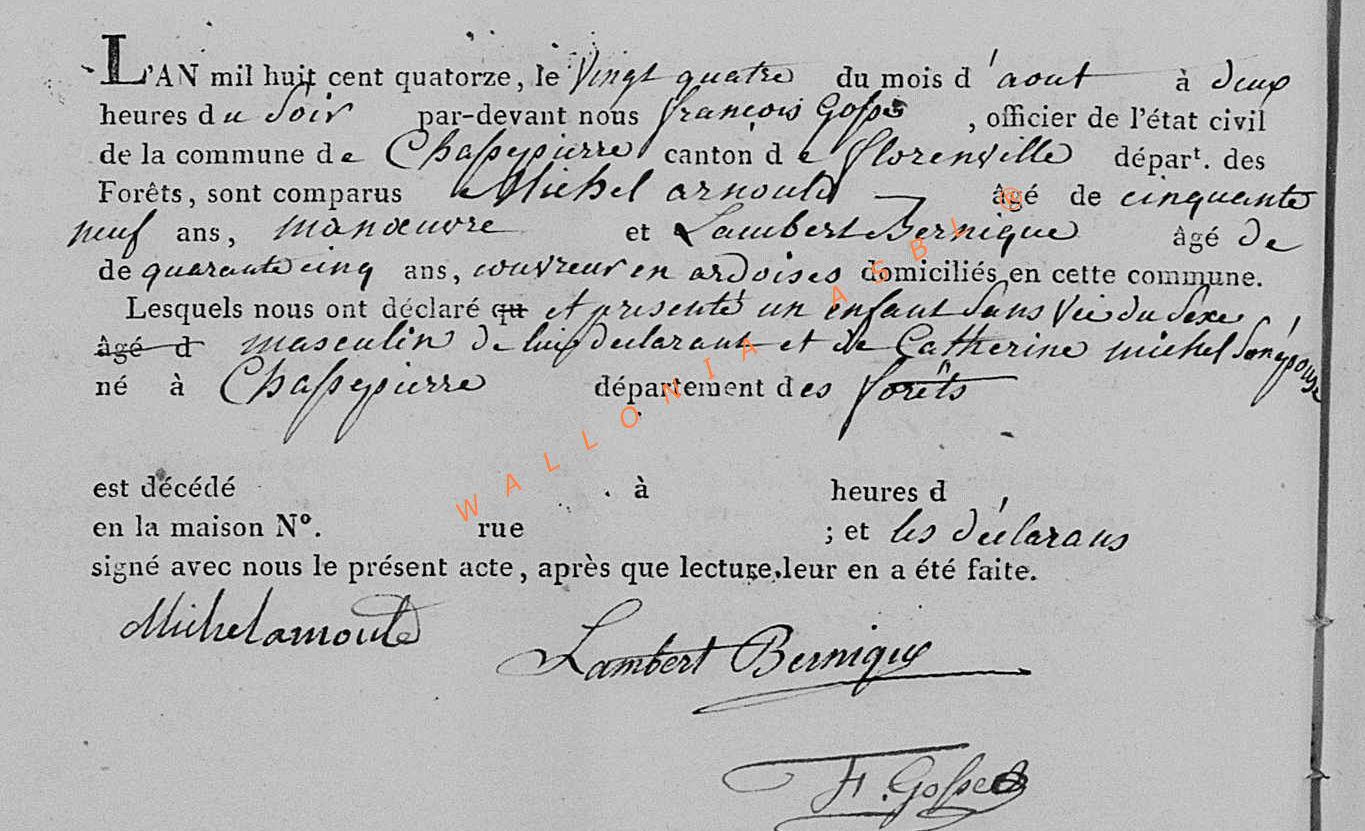 L'AN mil huit cent quatorze, le Vingt quatre du mois d'aout à deux
heures du Soir par-devant nous françois Gosse, officier de l'état civil
de la commune de Chassepierre canton de florenville départ. des
Forêts, sont comparus Michel arnould âgé de cinquante
neuf ans, manœuvre et Lambert Bernique âgé de
de quarante cinq ans, couvreur en ardoises domiciliés en cette commune.
Lesquels nous ont déclaré qu et presenté un enfant Sans Vie du Sexe
âgé d masculin de lui declarant et de Catherine michel Son épouse
né à Chassepierre département des forêts
est décédé à heures d
en la maison N°. rue ; et les déclarans
signé avec nous le présent acte, après que lecture leur en a été faite.
Michel arnould
Lambert Bernique
F. Gosse
WALLONIA ASBL ®